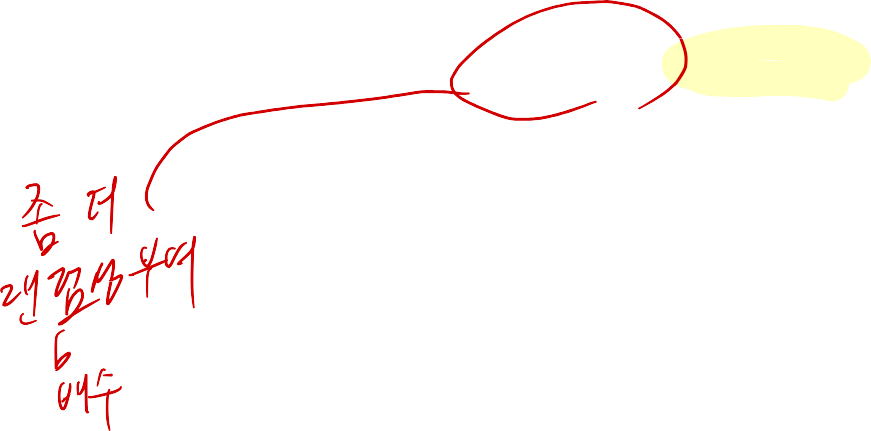 좀 더
랜덤성 부여
6
배수